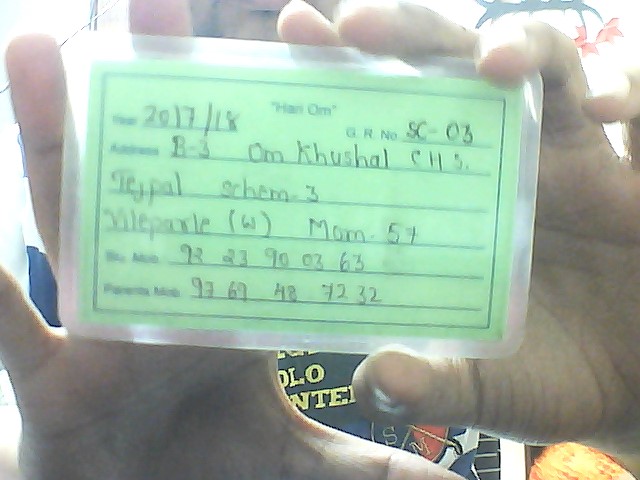 "Hari Om"
Year 2017/18 G. R. No SC-03
Address B-3 Om Khushal CHS.
Tejpal schem-3
Vileparle (W) Mom-57
Stu. Mob 92 23 90 03 63
Parents Mob 97 69 48 72 32
OLO
S M